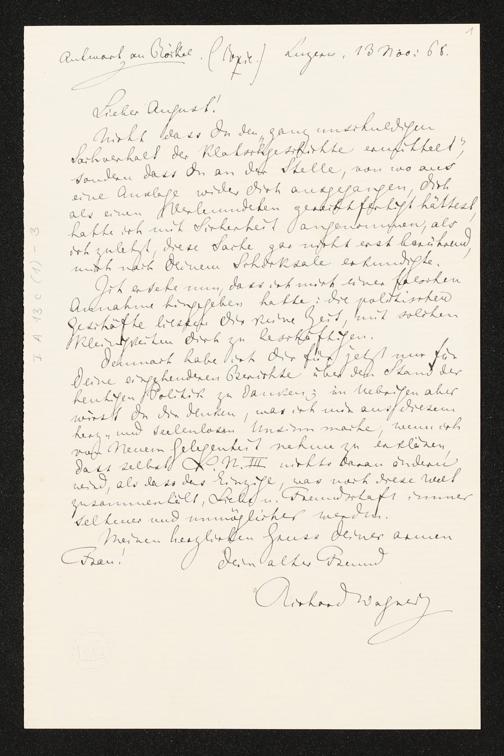 1
Antwort an Röckel. (Copie.) Luzern, 13 Nov: 68.
Lieber August!
Nicht dass Du den "ganz unschuldigen
Sachverhalt der Klatschgeschichte enthüllst",
sondern dass Du an der Stelle, von wo aus
eine Anklage wider Dich ausgegangen, Dich
als einen Verleumdeten gerechtfertigt hättest,
hatte ich mit Sicherheit angenommen, als
ich zuletzt, diese Sache gar nicht erst berührend,
mich nach Deinem Schicksale erkundigte.
Ich ersehe nun, dass ich mich einer falschen
Annahme hingegeben hatte: die politischen
Geschäfte liessen Dir keine Zeit, mit solchen
Kleinigkeiten Dich zu beschäftigen.
Demnach habe ich Dir für jetzt nur für
Deine eingehenderen Berichte über den Stand der
heutigen Politik zu danken; im Uebrigen aber
wirst Du Dir denken, was ich mir aus diesem
herz- und seelenlosen Unsinn mache, wenn ich
von Neuem Gelegenheit nehme zu ersehen,
dass selbst N. III nichts daran ändern
wird, als dass das Einzige, was noch diese Welt
zusammenhält, Liebe u. Freundschaft immer
seltener und unmöglicher werden.
Meinen herzlichen Gruss Deiner armen
Frau! Dein alter Freund
Richard Wagner
I A 13 c (1) - 3